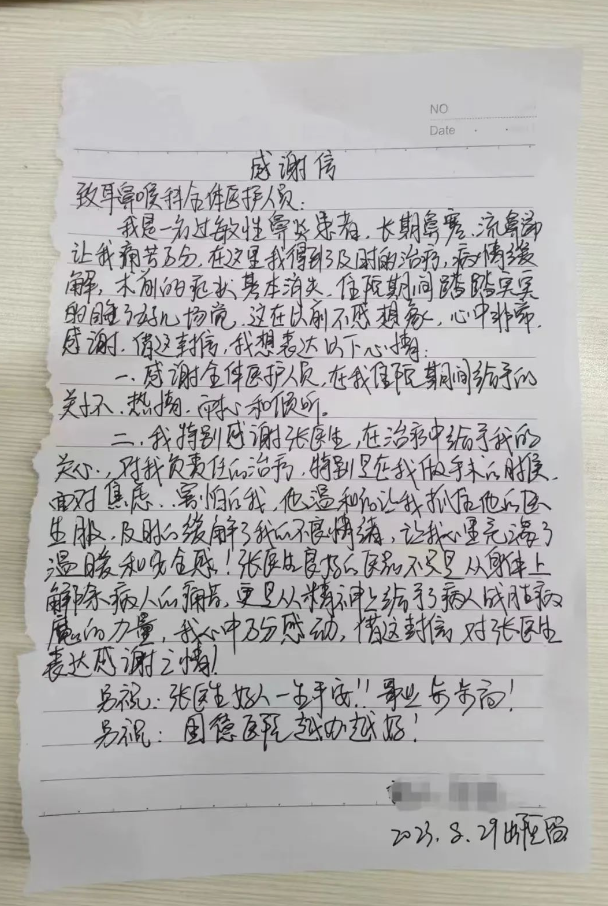 NO
Date
感谢信
致耳鼻喉科全体医护人员：
我是一名过敏性鼻炎患者，长期鼻塞、流鼻涕
让我痛苦万分，在这里我得到了及时的治疗，病情缓
解，术前的症状基本消失，住院期间踏踏实实
的睡了好几场觉，这在以前不敢想象，心中非常
感谢，借这封信，我想表达以下心情：
一、感谢全体医护人员，在我住院期间给予的
关怀、热情、耐心和倾听。
二、我特别感谢张医生，在治疗中给予我的
关心，对我负责任的治疗，特别是在我做手术的时候，
面对焦虑、害怕的我，他温和的让我抓住他的医
生服，及时的缓解了我的不良情绪，让我心里充满了
温暖和安全感！张医生良好的医品不只是从身体上
解除病人的痛苦，更是从精神上给予了病人战胜病
魔的力量，我心中万分感动，借这封信对张医生
表达感谢之情！
另祝：张医生好人一生平安!! 事业步步高！
另祝：国德医院越办越好！
2023.8.29